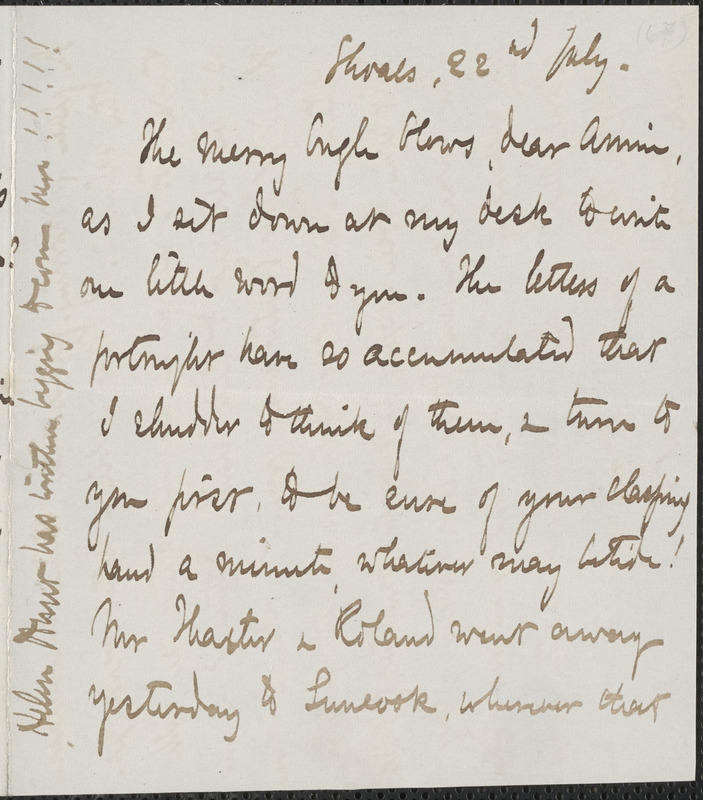 (67)
Shoals, 22nd July.
The merry bugle blows, dear Annie,
as I sit down at my desk to write
one little word to you. The letters of a
fortnight have so accumulated that
I shudder to think of them, & turn to
you first, to be sure of your clasping
hand a minute, whatever may betide!
Mr Thaxter & Roland went away
yesterday to Suncook, wherever that
Helen has written begging to come here !!!!!